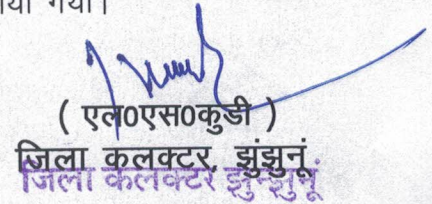 गया।
( एल०एस०कुडी )
जिला कलक्टर, झुंझुनूं
जिला कलक्टर झुन्झुनूं